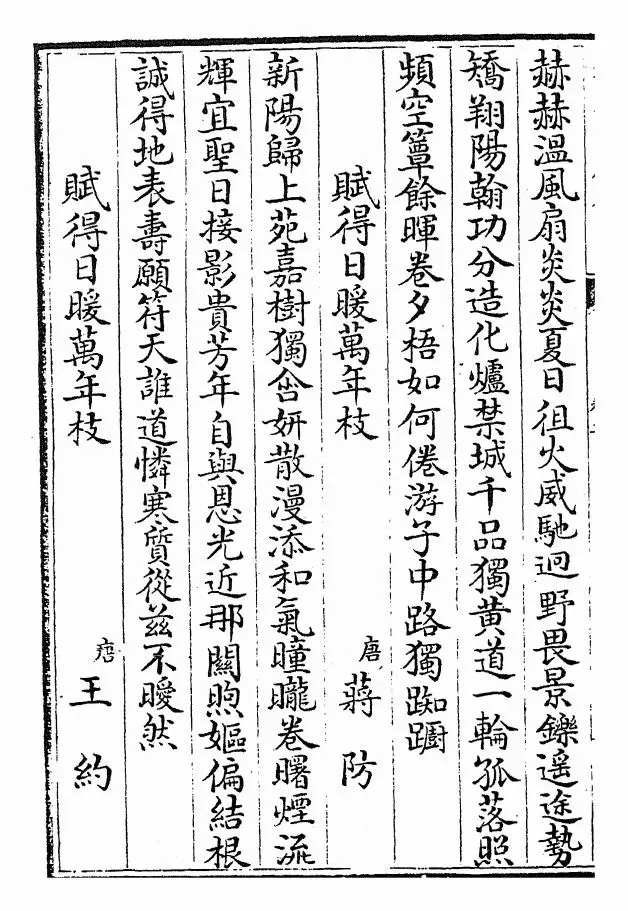 赫赫温風扇炎炎夏日徂火威馳迥野畏景鑠遥途勢
矯翔陽翰功分造化爐禁城千品獨黄道一輪孤落照
頻空簟餘暉卷夕梧如何倦游子中路獨踟躕
賦得日暖萬年枝 唐 蔣防
新陽歸上苑嘉樹獨含妍散漫添和氣曈曨卷曙煙流
輝宜聖日接影貴芳年自與恩光近那關煦嫗偏結根
誠得地表壽願符天誰道憐寒質從兹不曖然
賦得日暖萬年枝 唐 王約